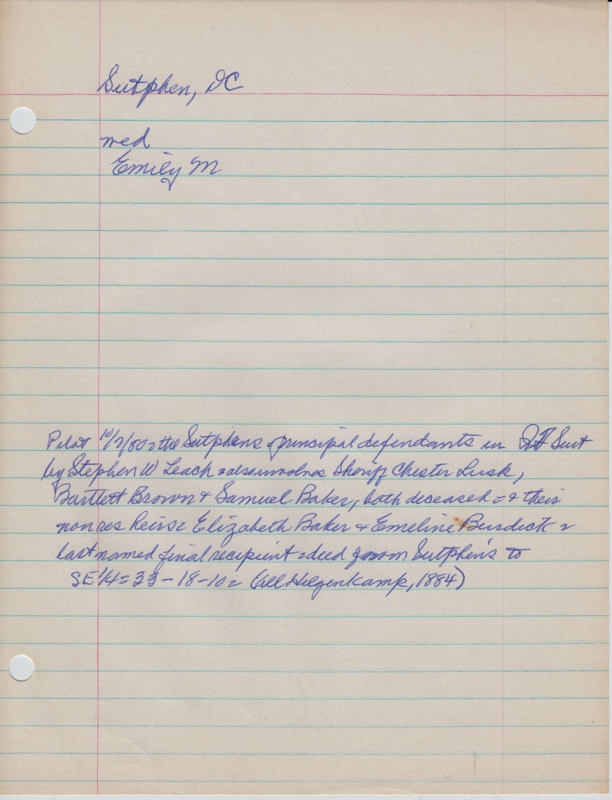 Sutphen, DC
med
Emily M
Pilot 10/7/80 = the Sutphens principal defendants in Suit
by Stephen W Leach = also involves Sheriff Chester Lusk,
Bartlett Brown & Samuel Baker, both deceased = & their
nonres heirs = Elizabeth Baker & Emeline Burdick =
last named final recipient = deed from Sutphen's to
SE¼ = 33-18-10 = (Hilgenkamp, 1884)